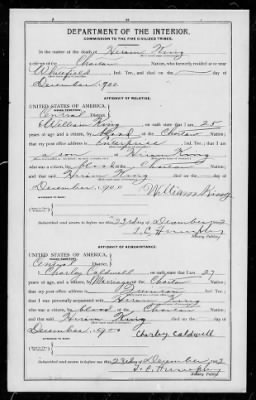 DEPARTMENT OF THE INTERIOR.
COMMISSION TO THE FIVE CIVILIZED TRIBES.
In the matter of the death of Hiram King
a citizen of the Choctaw Nation, who formerly resided at or near
Whitefield Ind. Ter., and died on the day of
December, 1900
AFFIDAVIT OF RELATIVE.
UNITED STATES OF AMERICA,
INDIAN TERRITORY,
Central District.
I, William King, on oath state that I am 25
years of age and a citizen, by blood of the Choctaw Nation;
that my post office address is Enterprise Ind. Ter.; that I
am a son of Hiram King
who was a citizen, by blood, of the Choctaw Nation,
and that said Hiram King died on the day of
December, 1900
William King
Subscribed and sworn to before me this 23 day of December 1902
Notary Public.
AFFIDAVIT OF ACQUAINTANCE.
UNITED STATES OF AMERICA,
INDIAN TERRITORY,
Central District.
I, Charley Caldwell, on oath state that I am 27
years of age, and a citizen by Marriage of the Choctaw Nation;
that my post office address is Ind. Ter.;
that I was personally acquainted with Hiram King
who was a citizen, by blood, of the Choctaw Nation,
and that said Hiram King died on the day of
December, 1900
Charley Caldwell
Subscribed and sworn to before me this 23 day of December 1902
Notary Public.